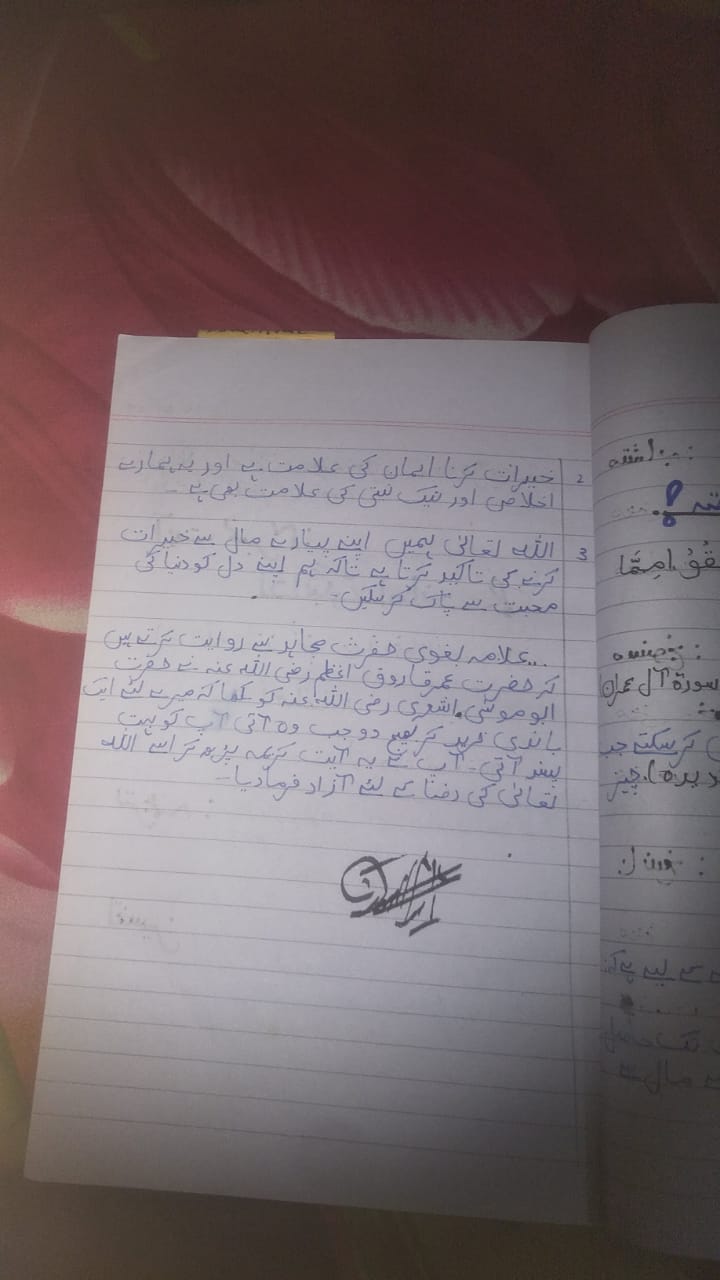 2 خیرات کرنا ایمان کی علامت ہے اور یہ ہمارے
اخلاص اور نیک نیتی کی علامت بھی ہے -
3 اللہ تعالیٰ ہمیں اپنے پیارے مال سے خیرات
کرنے کی تاکید کرتا ہے تاکہ ہم اپنے دل کو دنیا کی
محبت سے پاک کر سکیں -
علامہ بغوی حضرت مجاہد سے روایت کرتے ہیں
کہ حضرت عمر فاروق اعظم رضی اللہ عنہ نے حضرت
ابو موسیٰ اشعری رضی اللہ عنہ کو لکھا کہ میرے لئے ایک
باندی خرید کر بھیج دو جب وہ آئی آپ کو بہت
پسند آئی - آپ نے یہ آیت کریمہ پڑھ کر اسے اللہ
تعالیٰ کی رضا کے لئے آزاد فرما دیا -
سورۃ آل عمران
کر سکتے جب
چیز
کے لیے
مال سے